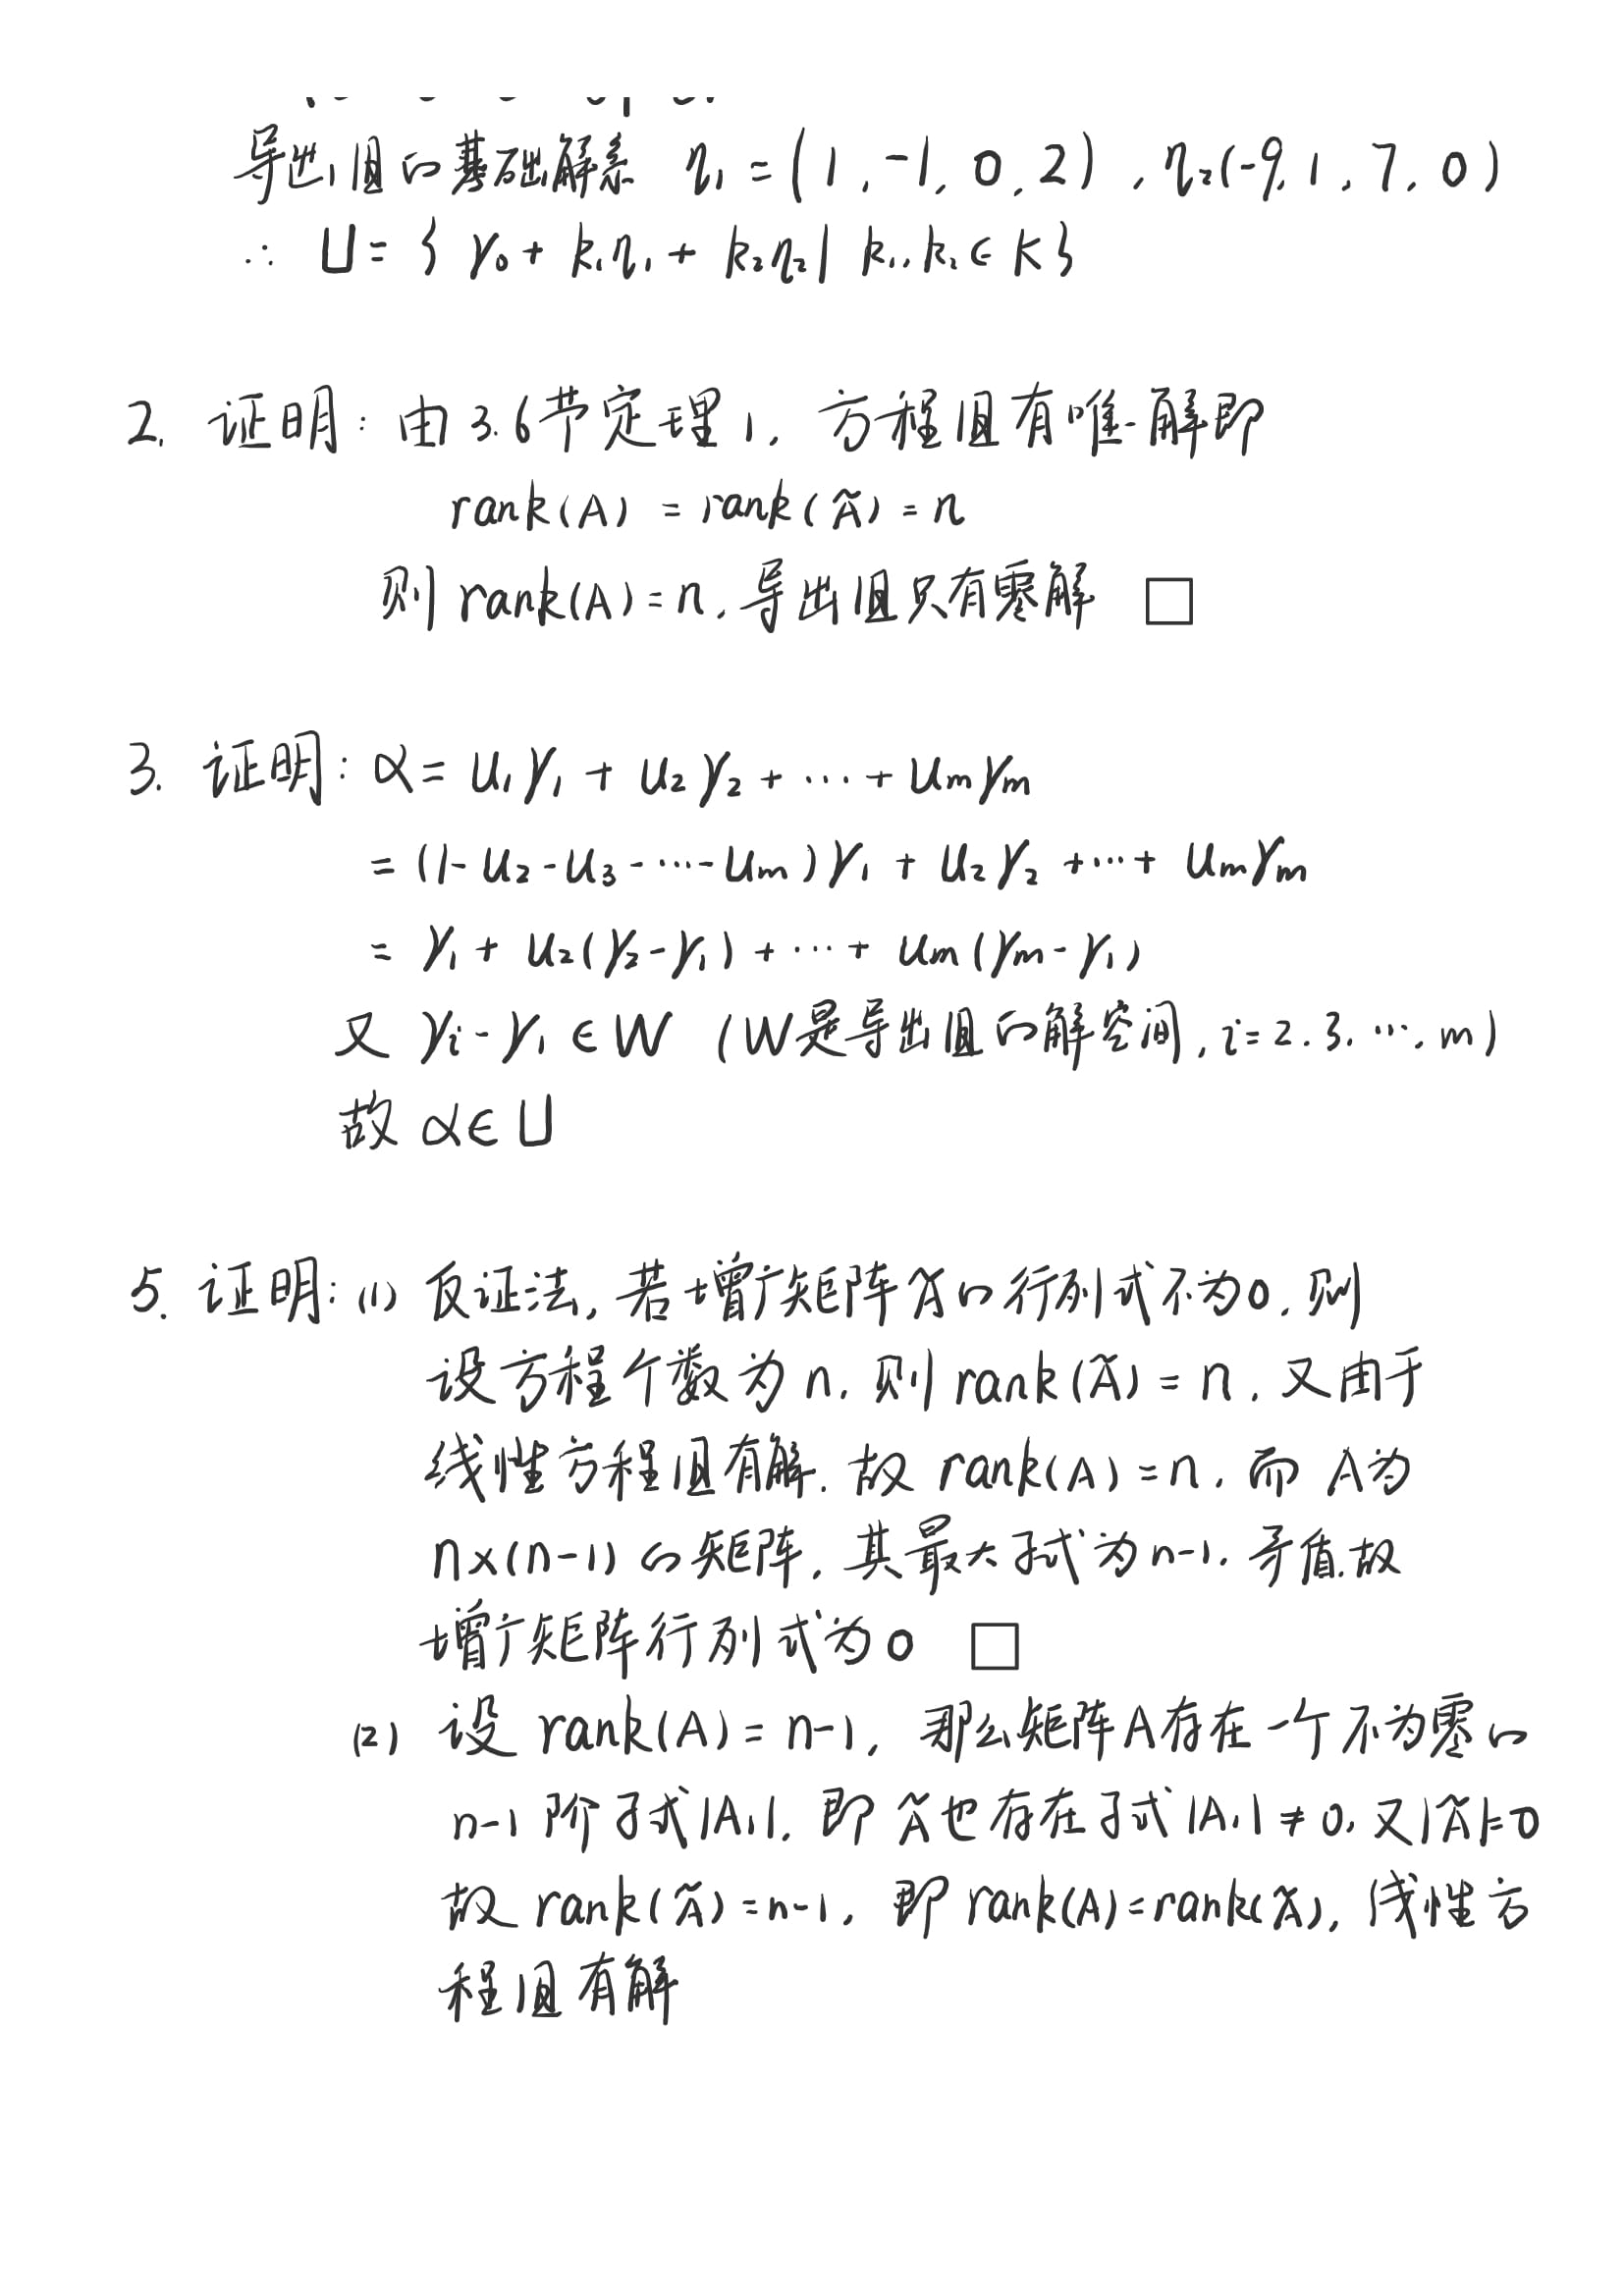 导出组的基础解系 η₁ = (1, -1, 0, 2), η₂(-9, 1, 7, 0)
∴ U = { γ₀ + k₁η₁ + k₂η₂ | k₁, k₂ ∈ K }
2. 证明: 由 3.6节定理1, 方程组有唯一解即
rank(A) = rank(Ã) = n
则 rank(A) = n, 导出组只有零解 □
3. 证明: α = u₁γ₁ + u₂γ₂ + ⋯ + uₘγₘ
= (1 - u₂ - u₃ - ⋯ - uₘ)γ₁ + u₂γ₂ + ⋯ + uₘγₘ
= γ₁ + u₂(γ₂ - γ₁) + ⋯ + uₘ(γₘ - γ₁)
又 γᵢ - γ₁ ∈ W (W是导出组的解空间, i = 2. 3. ⋯, m)
故 α ∈ U
5. 证明: (1) 反证法, 若增广矩阵Ã的行列式不为0, 则
设方程个数为 n, 则 rank(Ã) = n, 又由于
线性方程组有解. 故 rank(A) = n, 而 A为
n×(n-1)的矩阵, 其最大子式为n-1, 矛盾. 故
增广矩阵行列式为0 □
(2) 设 rank(A) = n-1, 那么矩阵A存在一个不为零的
n-1 阶子式|A₁|, 即 Ã也存在子式|A₁| ≠ 0, 又|Ã|=0
故 rank(Ã) = n-1, 即 rank(A) = rank(Ã), 线性方
程组有解